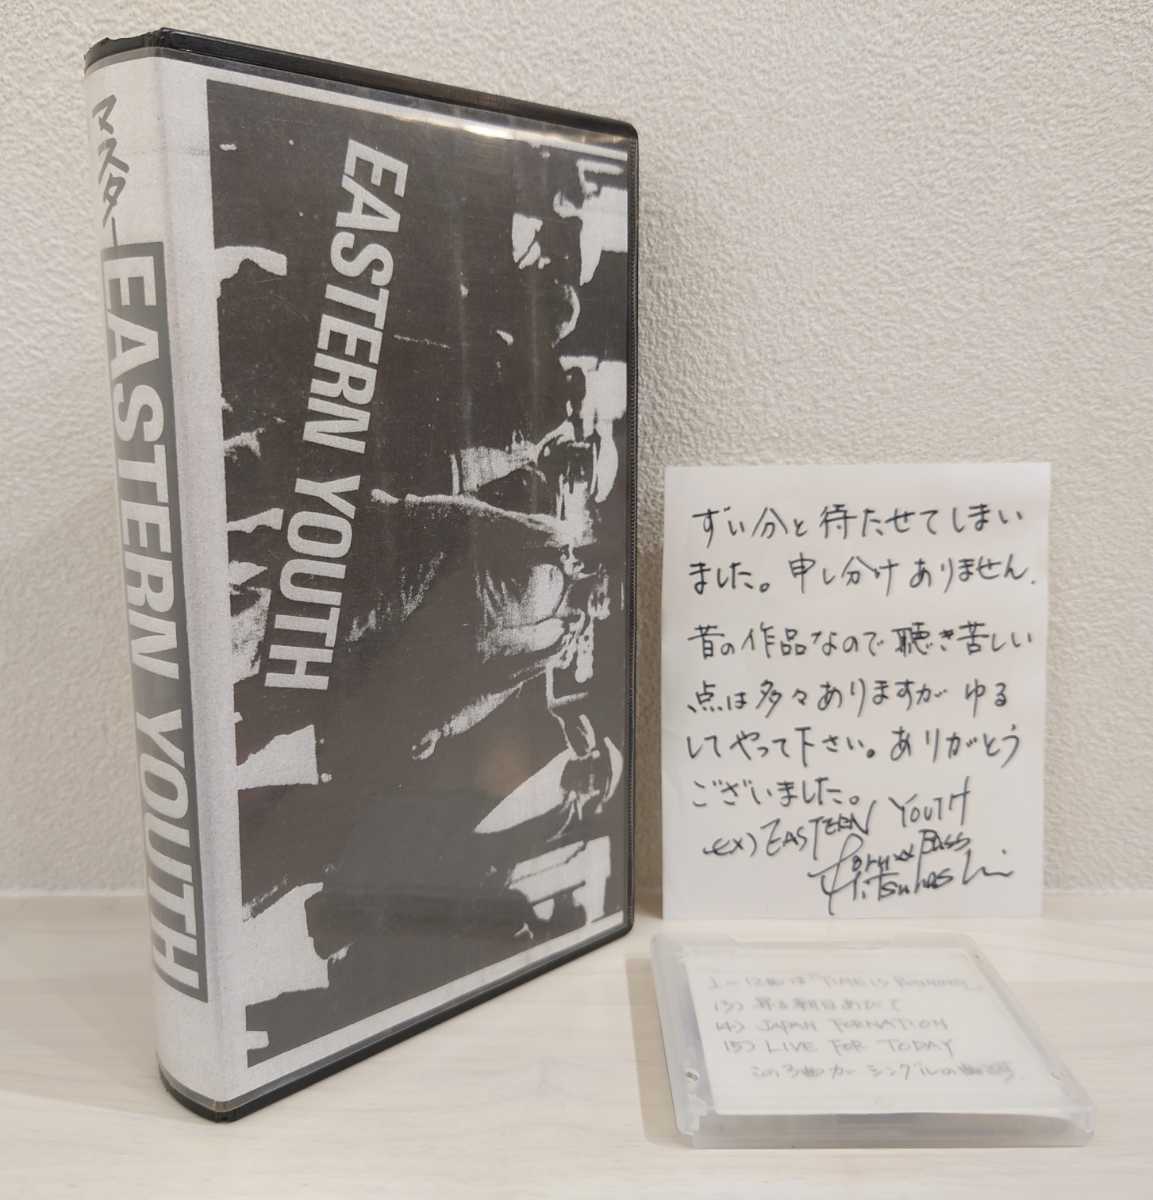 マスター
EASTERN YOUTH
EASTERN YOUTH
ずい分と待たせてしまい
ました。申し分けありません.
昔の作品なので聴き苦しい
点は多々ありますが ゆる
してやって下さい。ありがとう
ございました。
ex) EASTERN YOUTH
BASS
1-12曲は "TIME IS RUNNING"
13) 昇る朝日あびて
14) JAPAN FORMATION
15) LIVE FOR TODAY
この3曲が シングルの